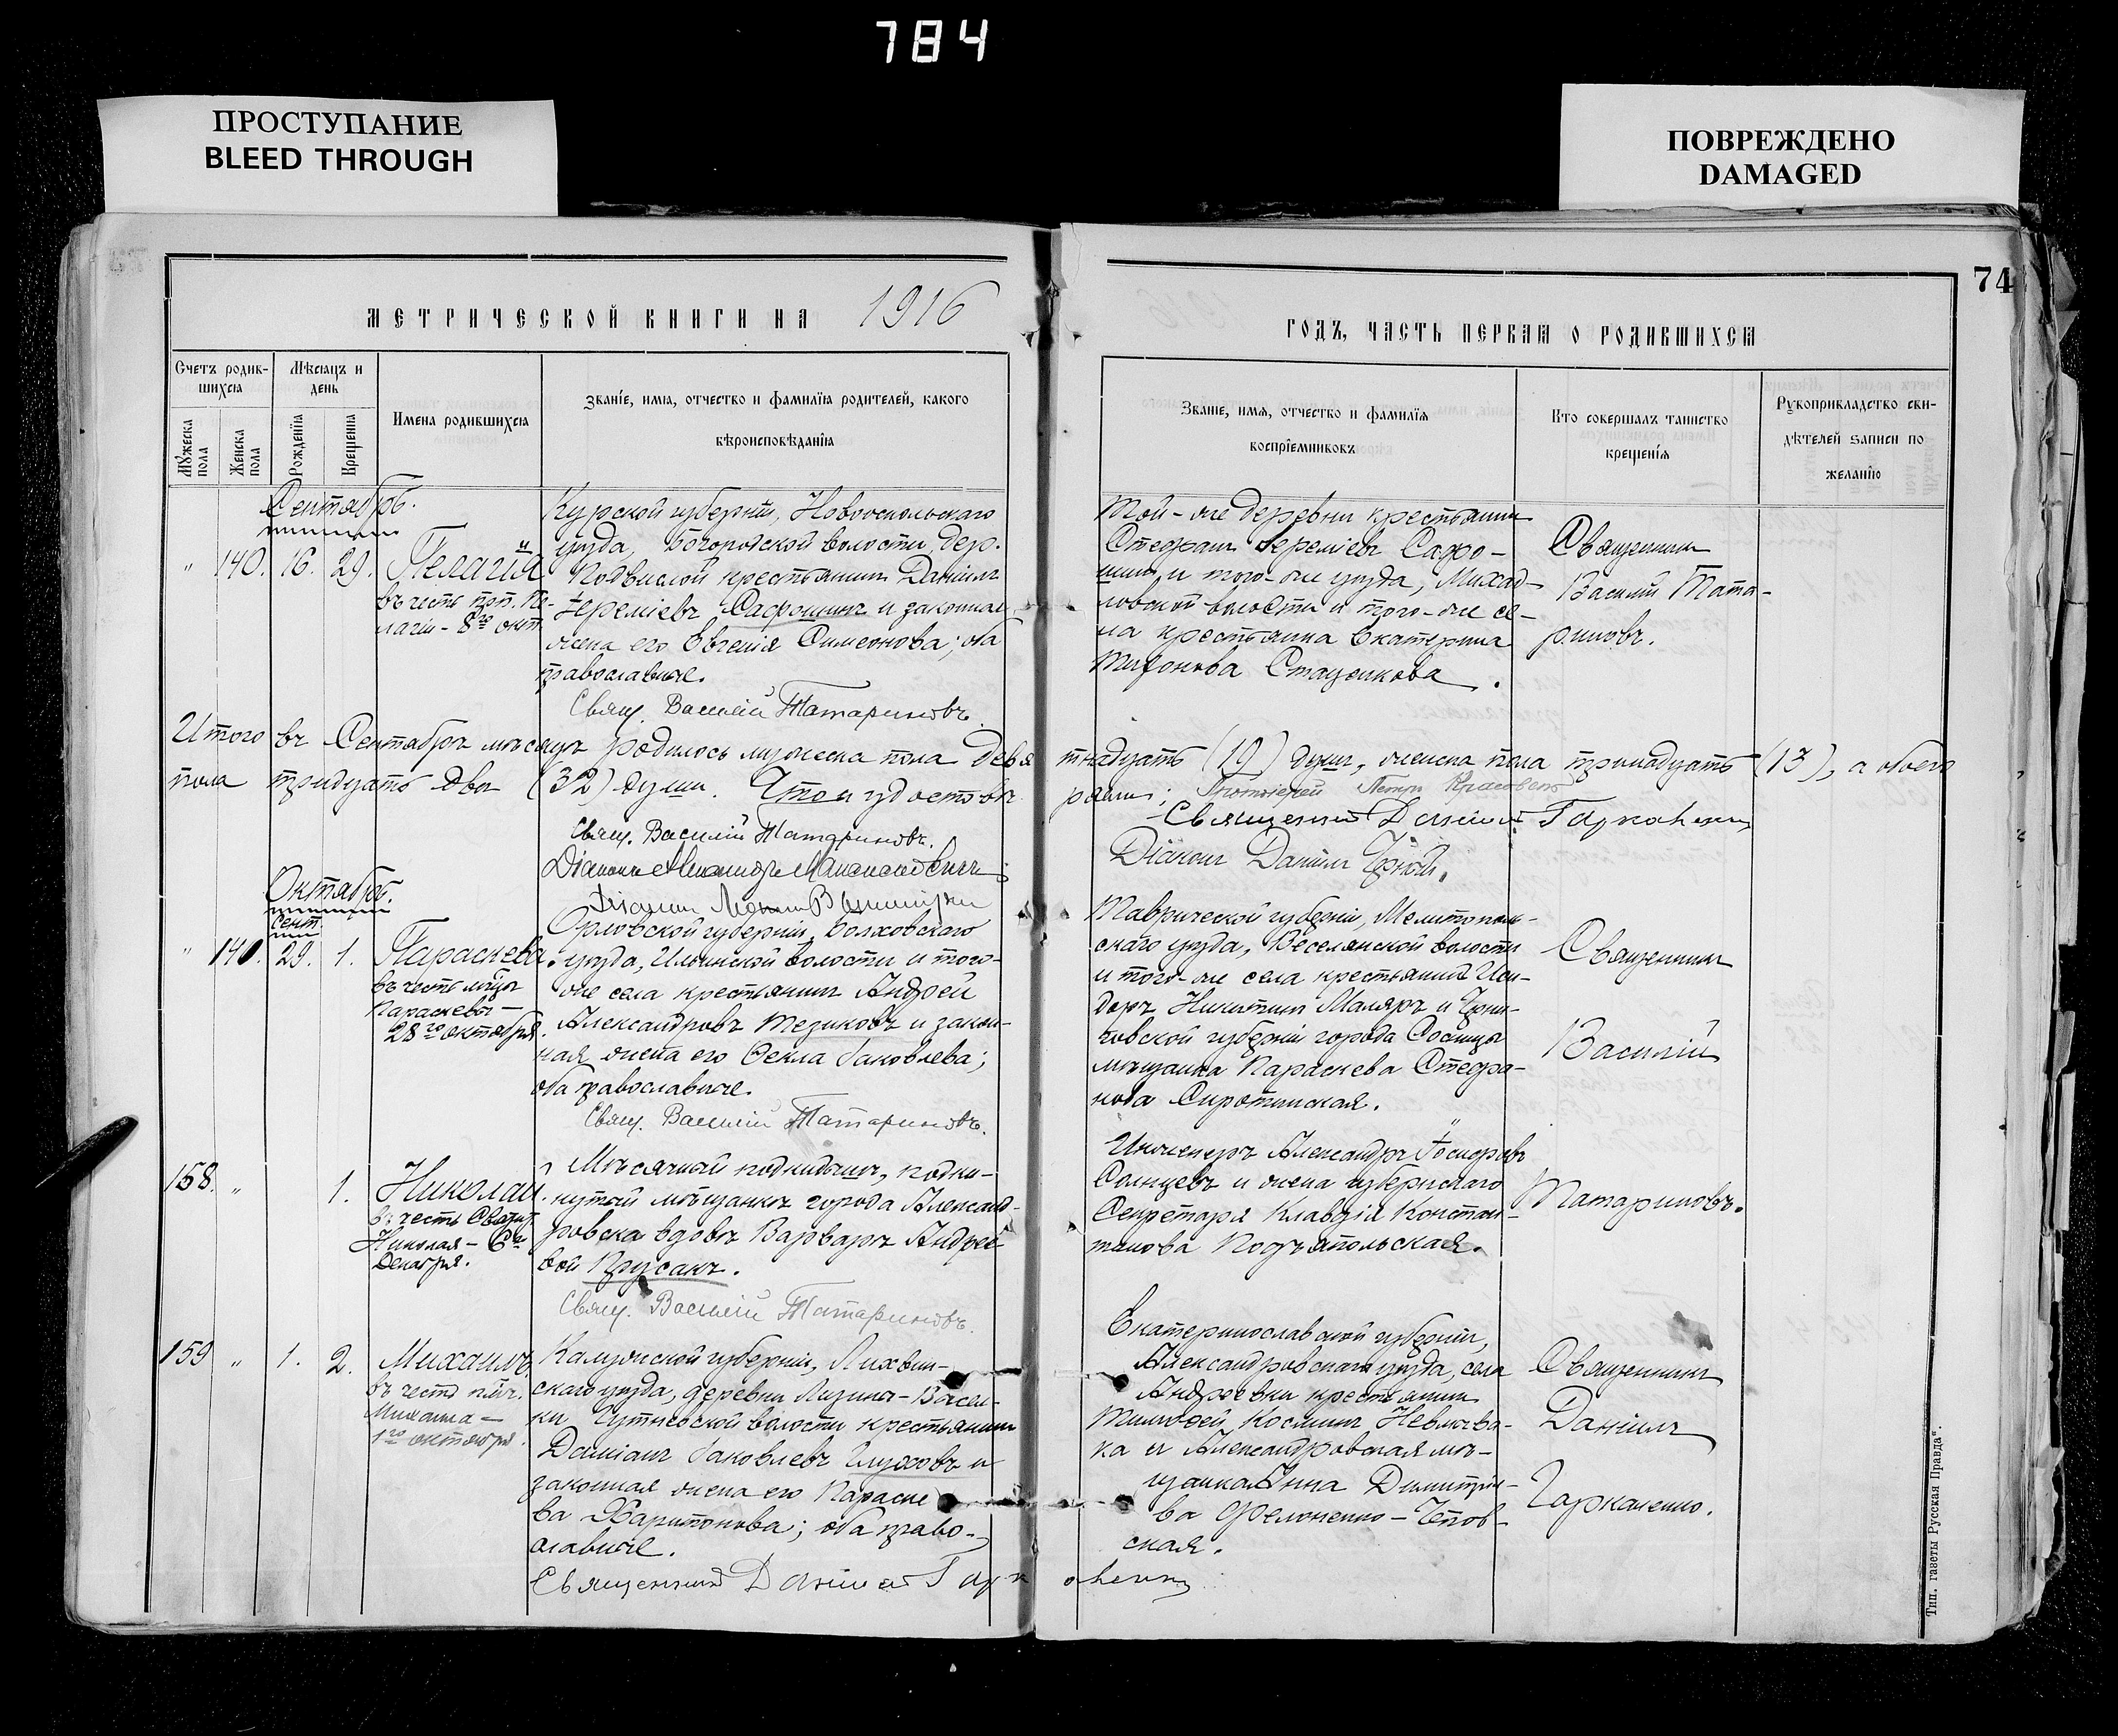 784
ПРОСТУПАНИЕ
BLEED THROUGH
ПОВРЕЖДЕНО
DAMAGED
74
МЕТРИЧЕСКОЙ КНИГИ НА 1916
ГОДЪ, ЧАСТЬ ПЕРВАЯ О РОДИВШИХСЯ
Счетъ родив-
шихся
Мѣсяцъ и
день
Мужеска пола
Женска пола
Рожденія
Крещенія
Имена родившихся
Званіе, имя, отчество и фамилія родителей, какого
вѣроисповѣданія
Званіе, имя, отчество и фамилія
воспріемниковъ
Кто совершалъ таинство
крещенія
Рукоприкладство сви-
дѣтелей записи по
желанію
Сентябрь.
" 140. 16. 29. Пелагія
въ честь прп. Пе-
лагіи - 8го окт.
Курской губерніи, Новооскольскаго
уѣзда, Богородской волости, дер.
Подвислой крестьянинъ Даніилъ
Іереміевъ Сафошинъ и законная
жена его Евгенія Симеонова; оба
православные.
Свящ. Василій Татариновъ.
Той-же деревни крестьянинъ
Стефанъ Іереміевъ Сафо-
шинъ и того-же уѣзда, Михай-
ловской волости и того-же се-
ла крестьянка Екатерина
Стаценкова.
Священникъ
Василій Тата-
риновъ.
Итого въ Сентябрѣ мѣсяцѣ родилось мужеска пола девят
надцать (19) душъ, женска пола тринадцать (13), а обоего
пола тридцать двѣ (32) души. Что и удостовѣ
ряемъ; Протоіерей Петръ
Свящ. Василій Татариновъ.
Священникъ Даніилъ Гаркавенко
Діаконъ Александръ
Діаконъ Даніилъ
Діаконъ
Октябрь.
Сент.
" 140. 29. 1. Параскева
въ честь мцы
Параскевы -
28го октября.
Орловской губерніи, Болховскаго
уѣзда, Ильинской волости и того-
же села крестьянинъ Андрей
Александровъ Тезиковъ и закон-
ная жена его Ѳекла Яковлева;
оба православные.
Свящ. Василій Татариновъ.
Таврической губерніи, Мелитополь-
скаго уѣзда, Веселянской волости
и того-же села крестьянинъ Иси-
доръ Никитинъ Маляръ и Черни-
говской губерніи города Сосницы
мѣщанка Параскева Стефа-
нова Сиротинская.
Священникъ
Василій
Татариновъ.
158. " 1. Николай.
въ честь Святит.
Николая - 6го
Декабря.
Мѣсячный подкидышъ, подки-
нутый мѣщанкѣ города Александ-
ровска вдовѣ Варварѣ Андрее-
вой Прусакъ.
Свящ. Василій Татариновъ.
Инженеръ Александръ Іосифовъ
Солнцевъ и жена губернскаго
Секретаря Клавдія Констан-
тинова Подъяпольская.
159 " 1. 2. Михаилъ
въ честь мч.
Михаила -
1го октября.
Калужской губерніи, Лихвин-
скаго уѣзда, деревни
волости крестьянинъ
Даміанъ Яковлевъ Глуховъ и
законная жена его Параске
ва Харитонова; оба право-
славные.
Священникъ Даніилъ Гаркавенко
Екатеринославской губерніи,
Александровскаго уѣзда, села
Андреевки крестьянинъ
Тимоѳей Косминъ
ка и Александровская мѣ-
щанка Анна Димитріе-
ва
ская.
Священникъ
Даніилъ
Гаркавенко.
Тип. газеты „Русская Правда".